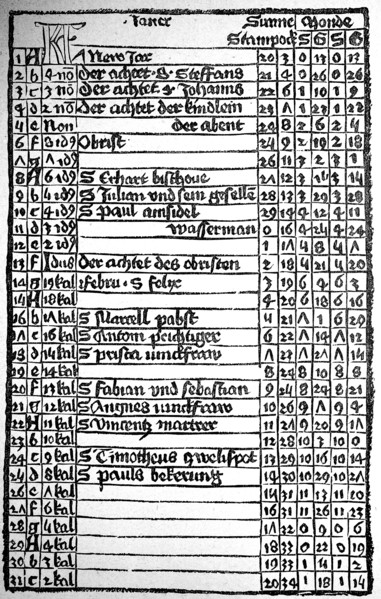 KL Janer Sunne Monde
Stainpock S G S G
1 A Newo Jar 20 3 0 13 0 13
2 b 4 no Der achtet S Steffans 21 4 0 26 0 26
3 c 3 no Der achtet S Johanns 22 6 1 10 1 9
4 d 2 no Der achtet der kindlein 23 7 1 23 1 22
5 e Non Der abent 24 8 2 6 2 5
6 f 8 id9 Obrist 25 9 2 19 2 18
7 g 7 id9 26 11 3 2 3 1
8 A 6 id9 S Erhart bischove 27 12 3 16 3 14
9 b 5 id9 S Julian vnd sein geselle 28 13 3 29 3 28
10 c 4 id9 S Paul ainsidel 29 15 4 12 4 11
11 d 3 id9 Wasserman 0 16 4 25 4 24
12 e 2 id9 1 17 5 8 5 7
13 f Idus Der achtet des obristen 2 18 5 21 5 20
14 g 19 kal febru. S Felix 3 19 6 4 6 3
15 A 18 kal 4 20 6 18 6 16
16 b 17 kal S Marcell pabst 5 21 7 1 6 29
17 c 16 kal S Antoni peichtiger 6 22 7 14 7 12
18 d 15 kal S Prisca iunckfraw 7 23 7 27 7 25
19 e 14 kal 8 24 8 10 8 8
20 f 13 kal S Fabian vnd sebastian 9 25 8 24 8 21
21 g 12 kal S Angnes iunckfraw 10 26 9 7 9 4
22 A 11 kal S Vincentz martrer 11 27 9 20 9 17
23 b 10 kal 12 28 10 3 10 0
24 c 9 kal S Timotheus zwelifpot 13 29 10 16 10 14
25 d 8 kal S Pauls bekerung 14 30 10 29 10 27
26 e 7 kal 15 31 11 13 11 10
27 f 6 kal 16 31 11 26 11 23
28 g 5 kal 17 32 0 9 0 6
29 A 4 kal 18 33 0 22 0 19
30 b 3 kal 19 33 1 5 1 2
31 c 2 kal 20 34 1 18 1 15